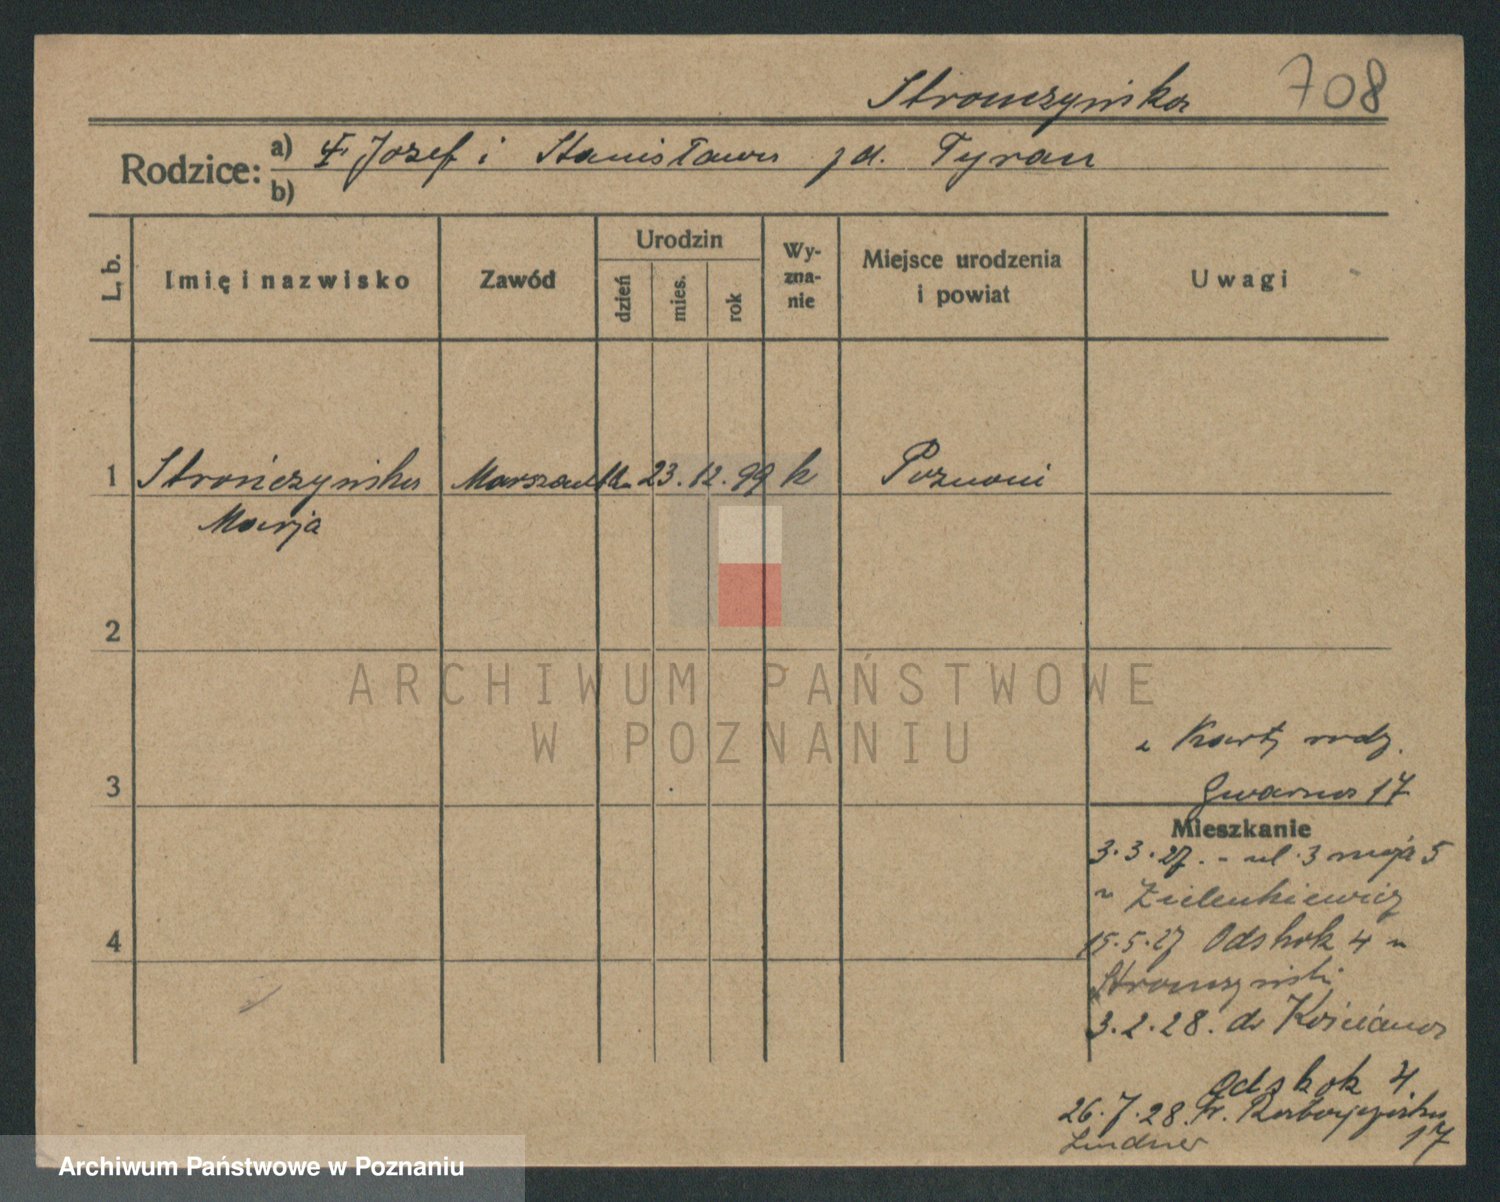 Stronczyńska 708
Rodzice: a) Józef i Stanisława zd. Tyran
b)
L. b. Imię i nazwisko Zawód Urodzin dzień mies. rok Wyznanie Miejsce urodzenia i powiat Uwagi
1 Strończyńska 23. 12. 99 k Poznań
Marja
2
ARCHIWUM PAŃSTWOWE
W POZNANIU
z Karty rodz.
3 Gwarna 17
Mieszkanie
3.3.27. - ul. 3 maja 5
u Zielenkiewicz
4 15.5.27 Odskok 4 u
Stronczyński
3.2.28. do Kościana
Odskok 4
26.7.28. Fr. Ratajczaka
17
Lindner
Archiwum Państwowe w Poznaniu